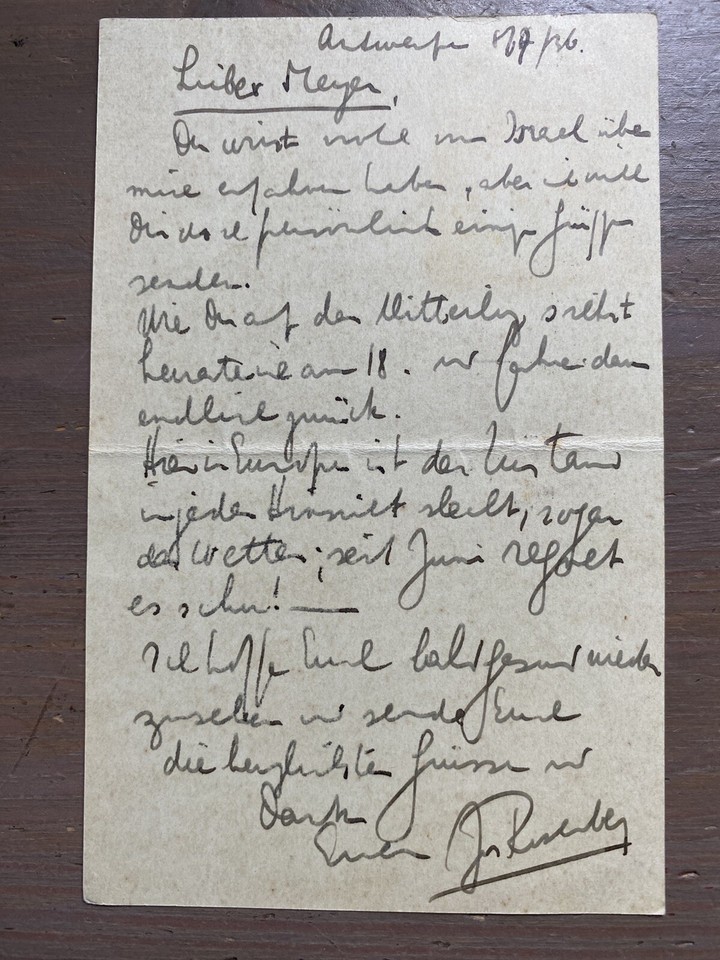 Antwerpen 8/7/36.
Lieber Meyer,
Du wirst wohl von Israel über
mich erfahren haben, aber ich will
Dir doch persönlich einige Grüsse
senden.
Wie Du auf der Mitteilung siehst
heirate ich am 18. und fahre dann
endlich zurück.
Hier in Europa ist der Zustand
in jeder Hinsicht schlecht, sogar
das Wetter; seit Juni regnet
es schon! —
Ich hoffe Euch bald gesund wieder
zusehen und sende Euch
die herzlichsten Grüsse und
Dank
Euer Jos Rosenberg